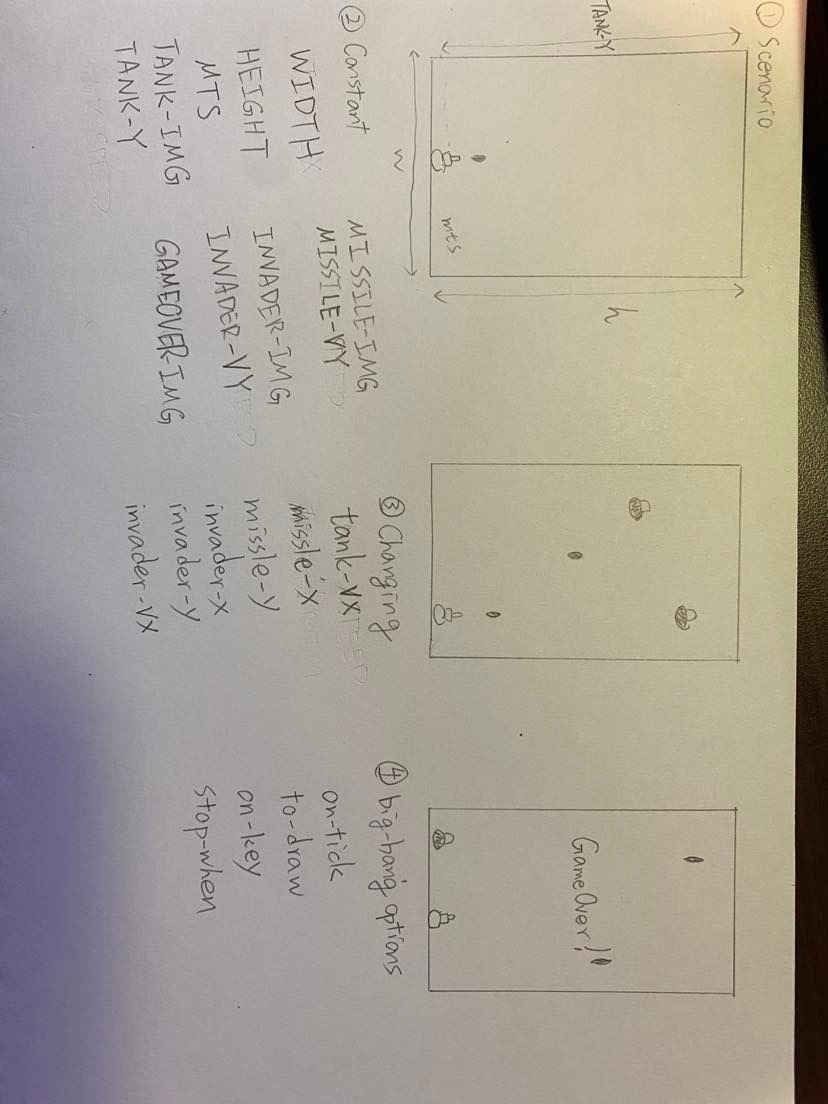 ① Scenario
TANK-Y
h
mts
w
Game Over!
② Constant
WIDTH
HEIGHT
MTS
TANK-IMG
TANK-Y
MISSILE-IMG
MISSILE-VY
INVADER-IMG
INVADER-VY
GAMEOVER-IMG
③ Changing
tank-VX
missle-x
missle-y
invader-x
invader-y
invader-VX
④ big-bang options
on-tick
to-draw
on-key
stop-when